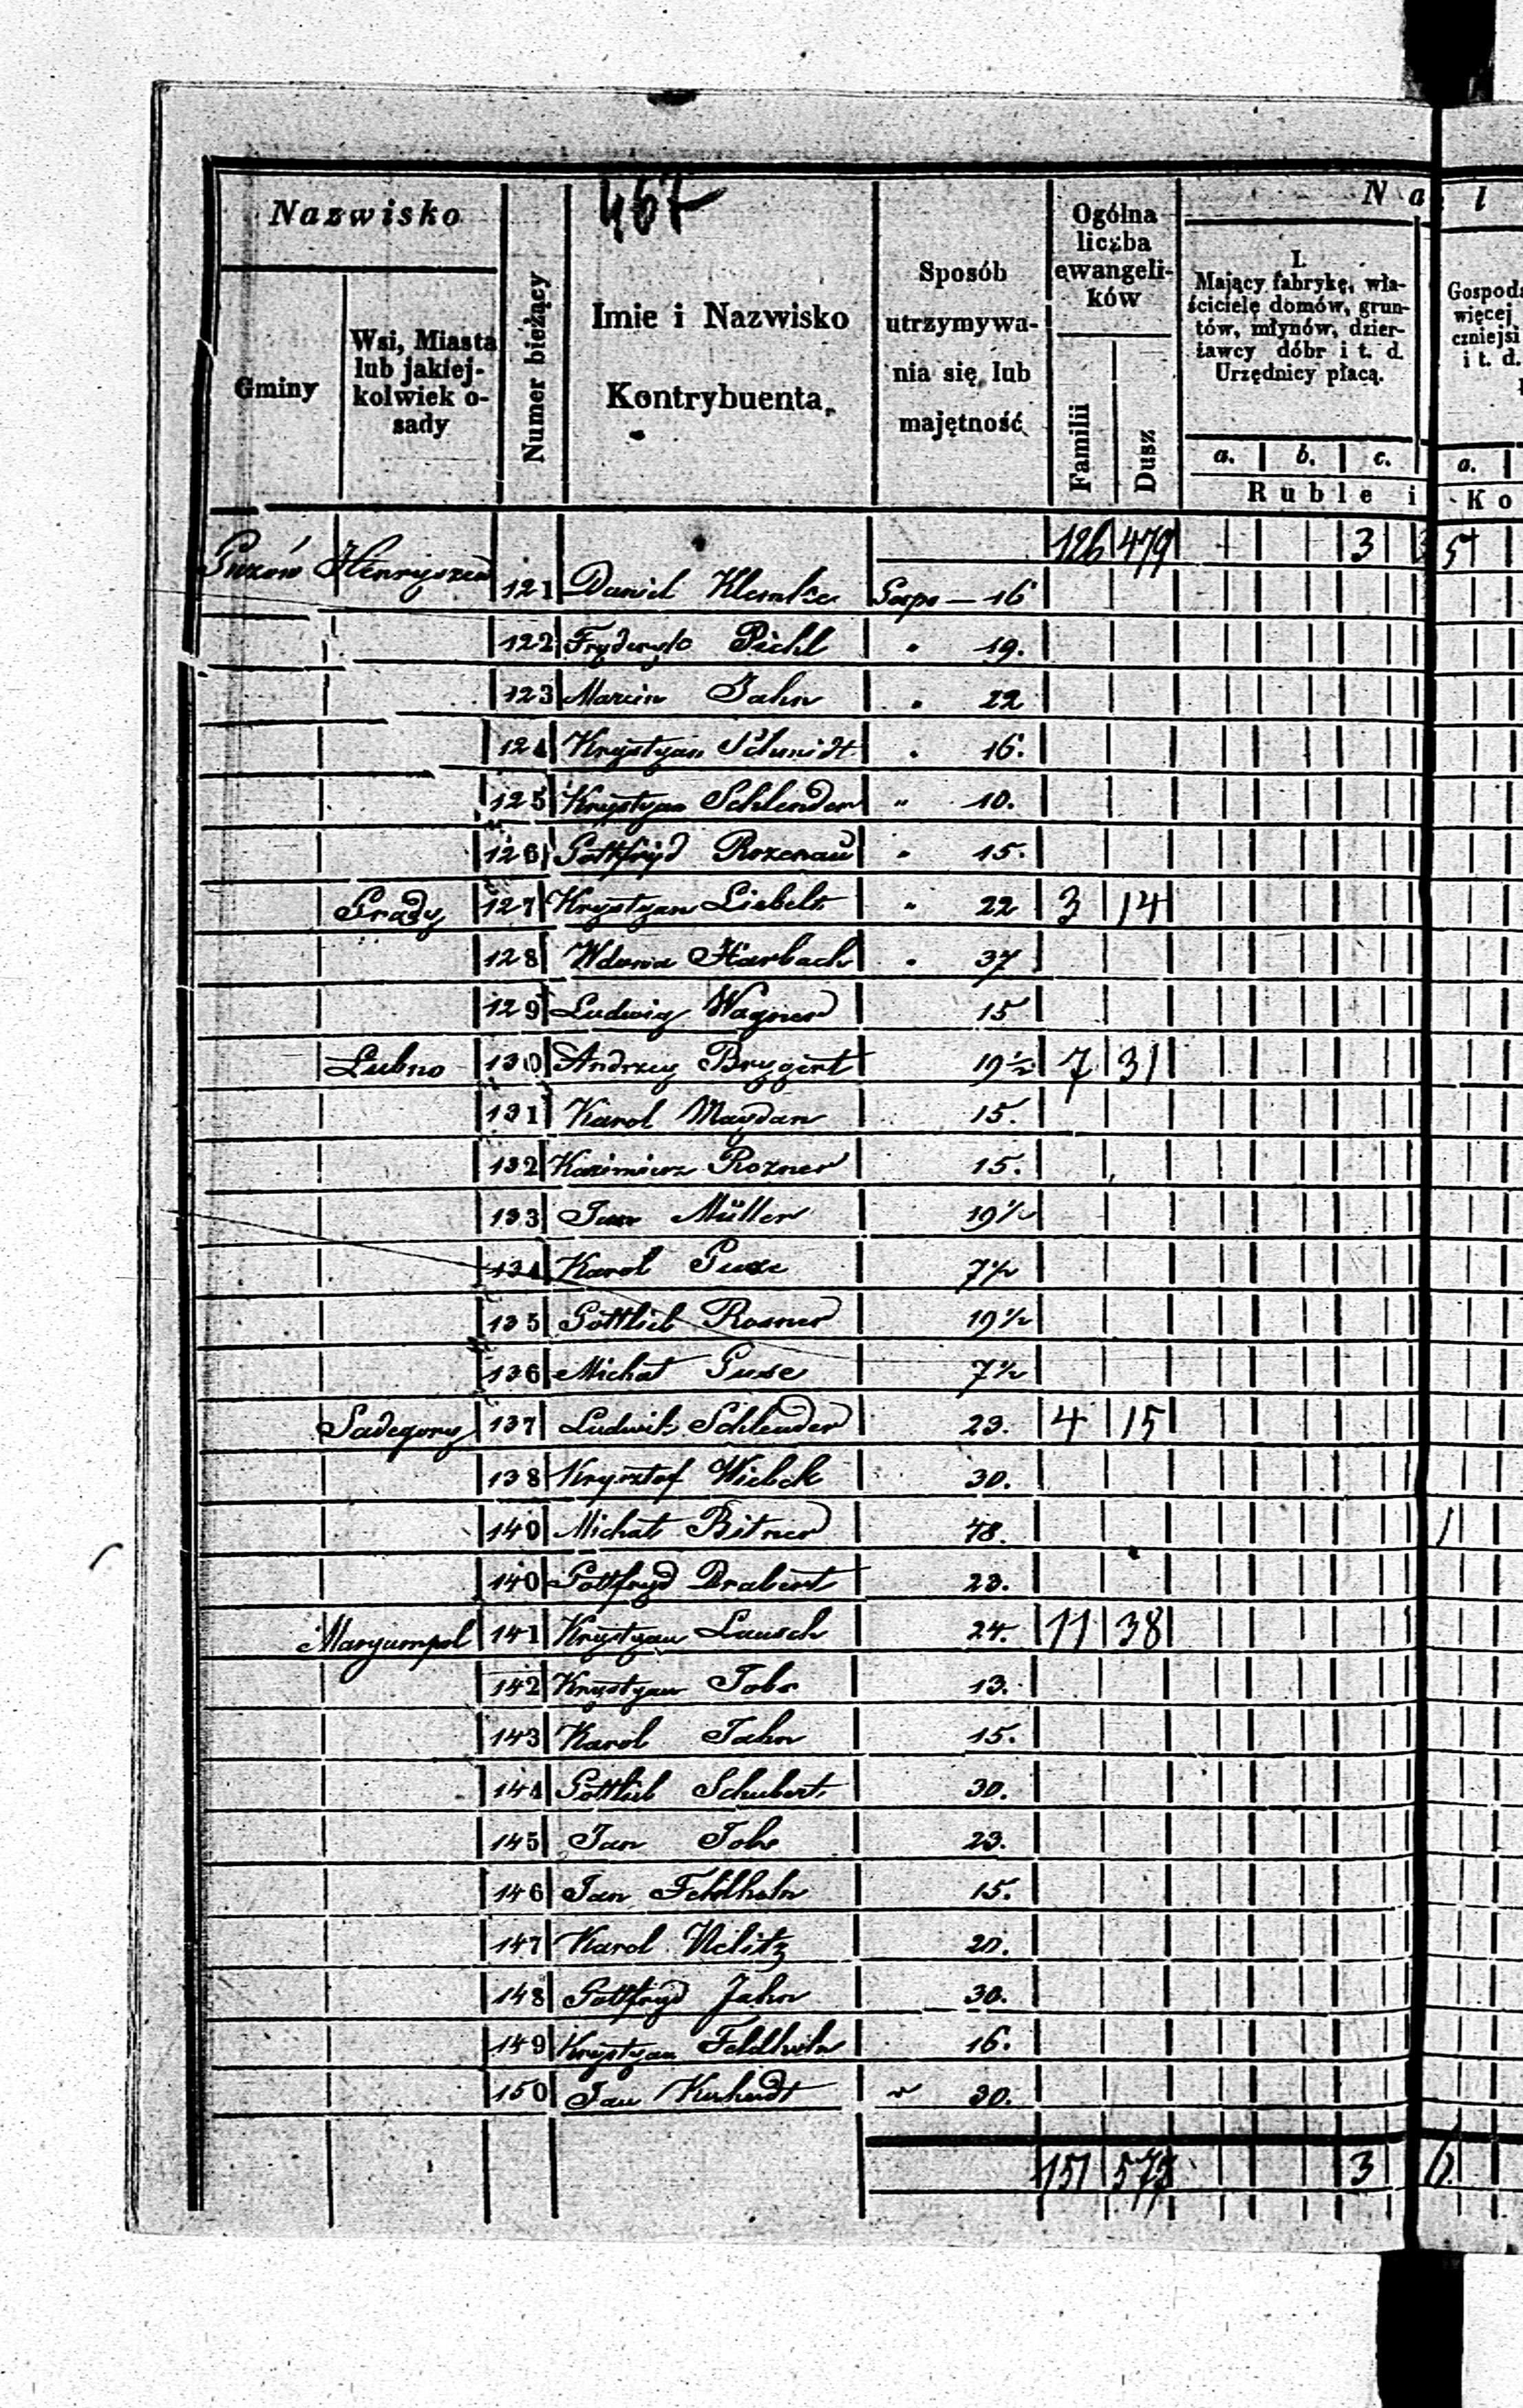 467
Nazwisko
Gminy
Wsi, Miasta
lub jakiej-
kolwiek o-
sady
Numer bieżący
Imie i Nazwisko
Kontrybuenta.
Sposób
utrzymywa-
nia się, lub
majętność
Ogólna
liczba
ewangeli-
ków
Familii
Dusz
N a l
I.
Mający fabrykę, wła-
ściciele domów, grun-
tów, młynów, dzier-
żawcy dóbr i t. d.
Urzędnicy płacą.
a. b. c.
Ruble i Ko
Gospoda
więcej
czniejsi
i t. d.
a.
126 479 3 5
Guzów Henryszew 121 Daniel Klemke Gosp — 16
122 Fryderyk Pichl " 19.
123 Marcin Jahn " 22
124 Krystyan Schmidt " 16.
125 Krystyan Schlender " 10.
126 Gottfryd Rozenau " 15.
Grady 127 Krystyan Liebelt " 22 3 14
128 Wdowa Harbach " 37
129 Ludwig Wagner 15
Lubno 130 Andrzey Brygert 19½ 7 31
131 Karol Maydan 15.
132 Kazimierz Rozner 15.
133 Jan Müller 19½
134 Karol Guse 7½
135 Gottlieb Rosner 19½
136 Michał Guse 7½
Sadegory 137 Ludwik Schlender 23. 4 15
138 Krysztof Wielck 30.
140 Michał Bitner 48. 1
140 Gottfryd Drabert 23.
Maryampol 141 Krystyan Lausch 24. 11 38
142 Krystyan 13.
143 Karol Jahn 15.
144 Gottlieb Schubert 30.
145 Jan 23.
146 Jan Feldhahn 15.
147 Karol 20.
148 Gottfryd Jahn 30.
149 Krystyan Feldhahn 16.
150 Jan 30.
151 3